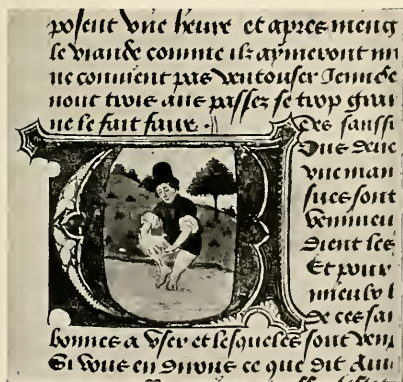 posent vne heure et apres meng
le viande comme ilz aymeront mi
ne conuient pas ventouser Jennes
nont trois ans passez se trop gran
ne le fait faire.
Des sanssu
une man
sues sont
venimeu
dient les
Et pour
mieulx l
de ces san
bonnes a vser et lesqueles sont veni
Si vous en dirons ce que dit Aui